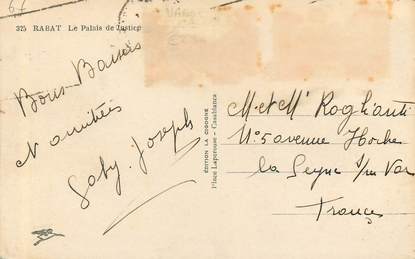 325 RABAT Le Palais de Justice
Bons Baisers
et amitiés
Gaby. Joseph
EDITION LA CIGOGNE
Place Laperouse - Casablanca
M. et Me Roglianti
N: 5 avenue Hoche
La Seyne s/mer Var
France